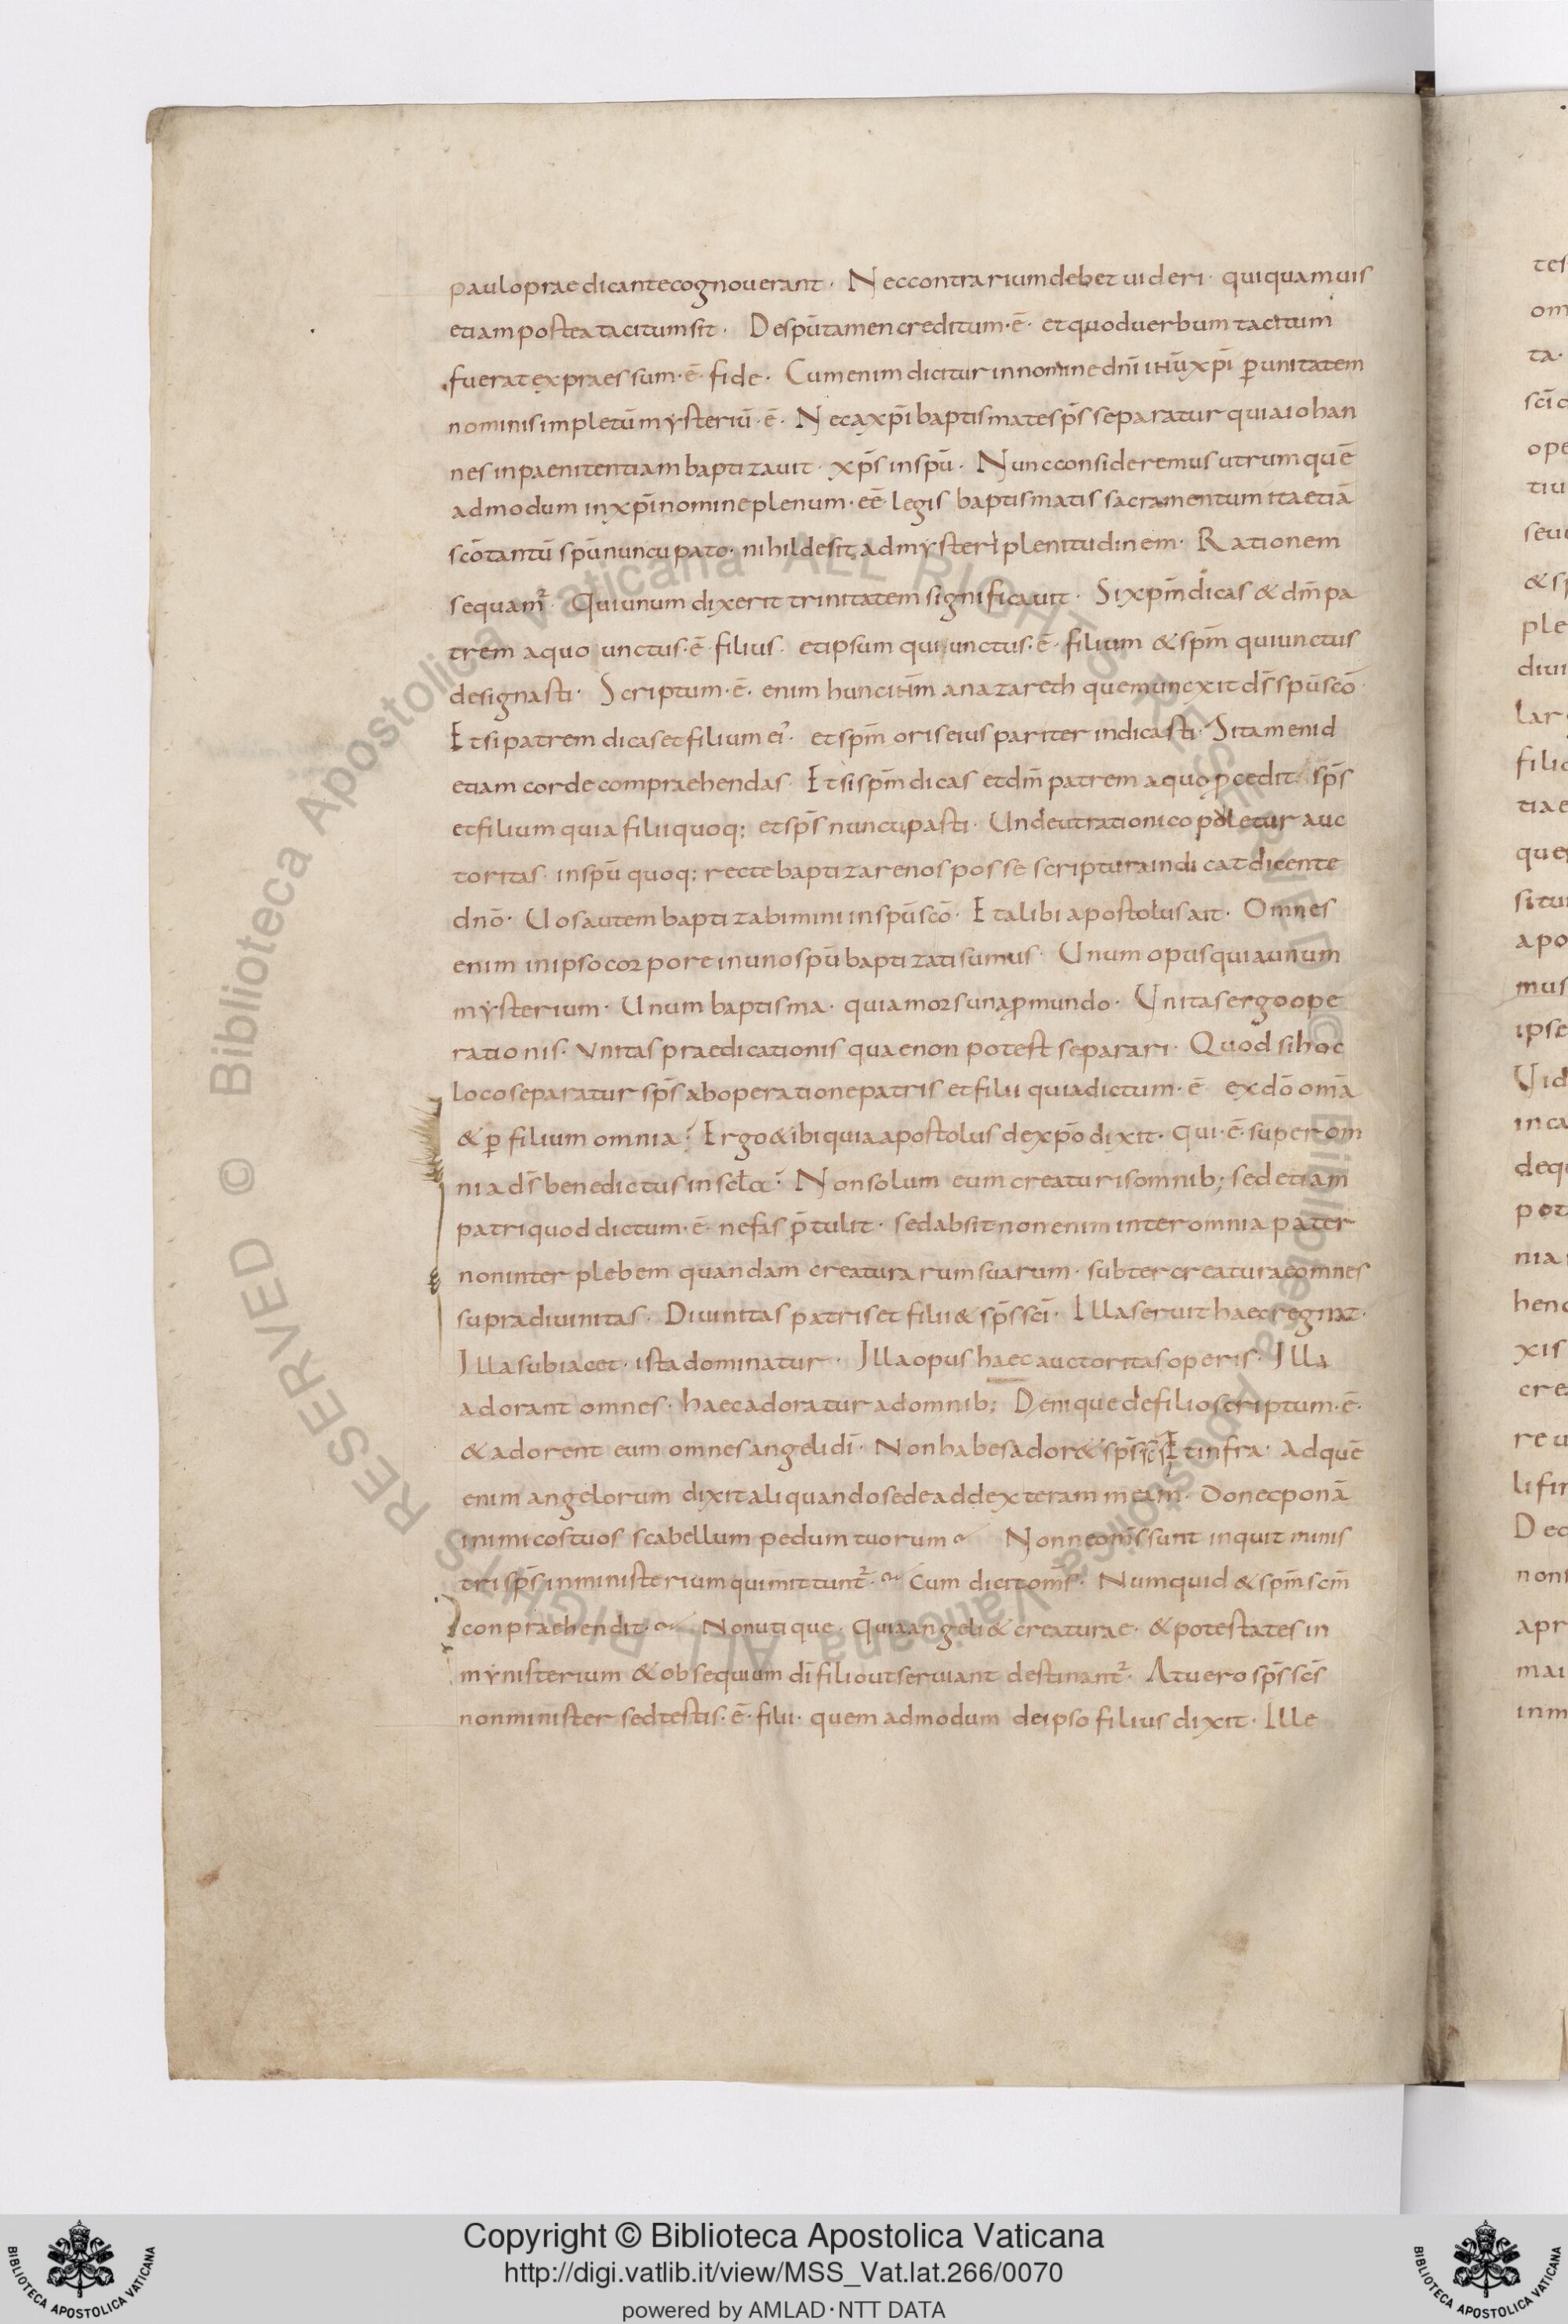 paulo praedicante cognoverant · Nec contrarium debet uideri · quiquamuis
etiam postea tacitum sit · De spū tamen creditum · ē · et quod uerbum tacitum
fuerat expraessum · ē · fide · Cum enim dicitur in nomine dn̄i ihū xp̄i ꝑ unitatem
nominis impletū mysteriū · ē · Nec a xp̄i baptismate sp̄s separatur quia iohan
nes in paenitentiam baptizauit · xp̄s in spū · Nunc consideremus utrum quē
admodum in xp̄i nomine plenum · eē · legis baptismatis sacramentum ita etiā
scō tantū spū nuncupato · nihil desit ad mysterii plenitudinem · Rationem
sequamur · Qui unum dixerit trinitatem significauit · Si xpm̄ dicas & dm̄ pa
trem a quo unctus · ē · filius · et ipsum qui unctus · ē · filium & spm̄ qui unctus
designasti · Scriptum · ē · enim hunc ihm̄ a nazareth quem unxit ds̄ spū scō
Et si patrem dicas et filium ei' · et spm̄ oris eius pariter indicasti · Si tamen id
etiam corde compraehendas · Et si spm̄ dicas et dm̄ patrem a quo ꝓcedit sp̄s
et filium quia filii quoq; et sp̄s nuncupasti · Unde ut rationi copoletur auc
toritas in spū quoq; recte baptizare nos posse scriptura indicat dicente
dnō · Uos autem baptizabimini in spū scō · Et alibi apostolus ait · Omnes
enim in ipso corpore in uno spū baptizati sumus · Unum opus quia unum
mysterium · Unum baptisma · quia mors una ꝓ mundo · Unitas ergo ope
rationis · Unitas praedicationis quae non potest separari · Quod si hoc
loco separatur sp̄s ab operatione patris et filii quia dictum · ē ex dō omā
& ꝑ filium omnia · Ergo & ibi quia apostolus de xpō dixit · qui · ē · super om
nia ds̄ benedictus in scła · Non solum eum creaturis omnib; sed etiam
patri quod dictum · ē · nefas p̄tulit · sed absit non enim inter omnia pater
non inter plebem quandam creaturarum suarum · subter creaturae omnes
supra diuinitas · Diuinitas patris et filii & sp̄s scī · Illa seruit haec regnat ·
Illa subiacet · ista dominatur · Illa opus haec auctoritas operis · Illa
adorant omnes · haec adoratur ab omnib; Denique de filio scriptum · ē ·
& adorent eum omnes angeli dī · Non habes ador& sp̄s scs Et infra · Ad quē
enim angelorum dixit aliquando sede ad dexteram meam · Donec ponā
inimicos tuos scabellum pedum tuorum Nonne om̄s sunt inquit minis
tri sp̄s in ministerium qui mittuntur · Cum dicit om̄s · Numquid & spm̄ scm̄
conpraehendit · Non utique · Quia angeli & creaturae · & potestates in
mynisterium & obsequium dī filio ut seruiant destinantur · At uero sp̄s scs̄
non minister sed testis · ē · filii · quem admodum de ipso filius dixit · Ille
Copyright © Biblioteca Apostolica Vaticana
http://digi.vatlib.it/view/MSS_Vat.lat.266/0070
powered by AMLAD·NTT DATA
BIBLIOTECA APOSTOLICA VATICANA
BIBLIOTECA APOSTOLICA VATICANA
© Biblioteca Apostolica Vaticana ALL RIGHTS RESERVED
© Biblioteca Apostolica Vaticana ALL RIGHTS RESERVED